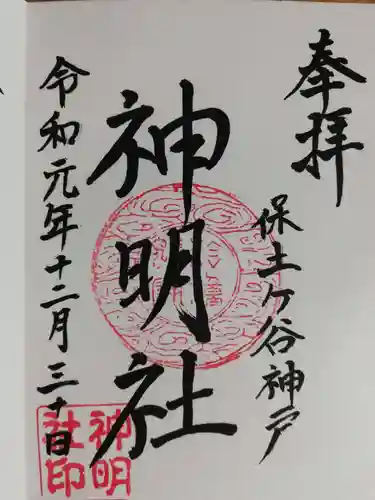 奉拝
保土ヶ谷神戸
神明社
令和元年十二月三十日
神明
社印